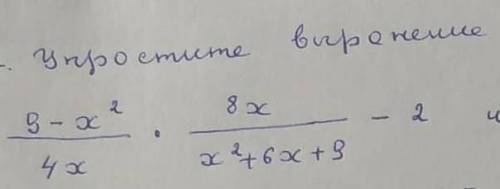 Упростите выражение
9 - x² / 4x · 8x / x² + 6x + 9 - 2 и